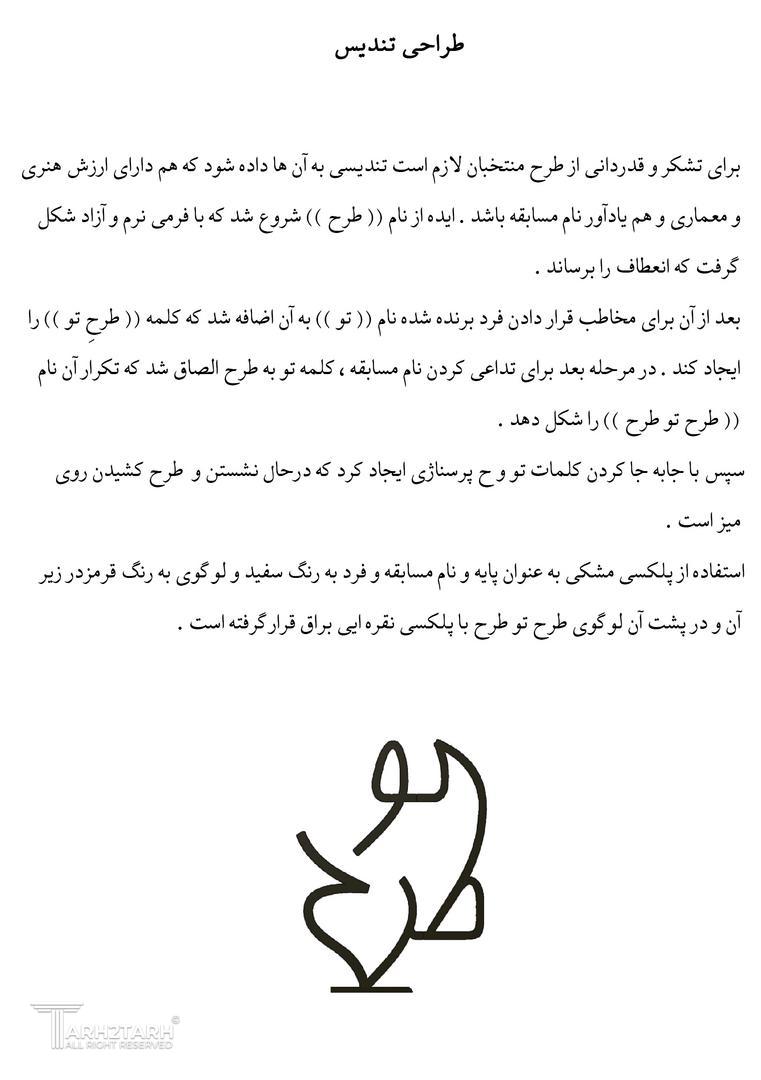 طراحی تندیس
برای تشکر و قدردانی از طرح منتخبان لازم است تندیسی به آن ها داده شود که هم دارای ارزش هنری
و معماری و هم یادآور نام مسابقه باشد . ایده از نام (( طرح )) شروع شد که با فرمی نرم و آزاد شکل
گرفت که انعطاف را برساند .
بعد از آن برای مخاطب قرار دادن فرد برنده شده نام (( تو )) به آن اضافه شد که کلمه (( طرحِ تو )) را
ایجاد کند . در مرحله بعد برای تداعی کردن نام مسابقه ، کلمه تو به طرح الصاق شد که تکرار آن نام
(( طرح تو طرح )) را شکل دهد .
سپس با جابه جا کردن کلمات تو و ح پرسناژی ایجاد کرد که درحال نشستن و طرح کشیدن روی
میز است .
استفاده از پلکسی مشکی به عنوان پایه و نام مسابقه و فرد به رنگ سفید و لوگوی به رنگ قرمزدر زیر
آن و در پشت آن لوگوی طرح تو طرح با پلکسی نقره ایی براق قرارگرفته است .
TARH2TARH©
ALL RIGHT RESERVED